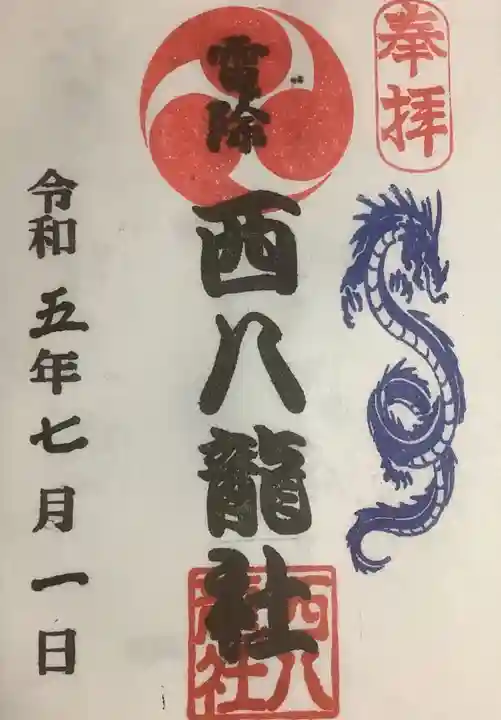 奉拝
電除
西八龍社
西八
龍社
令和五年七月一日